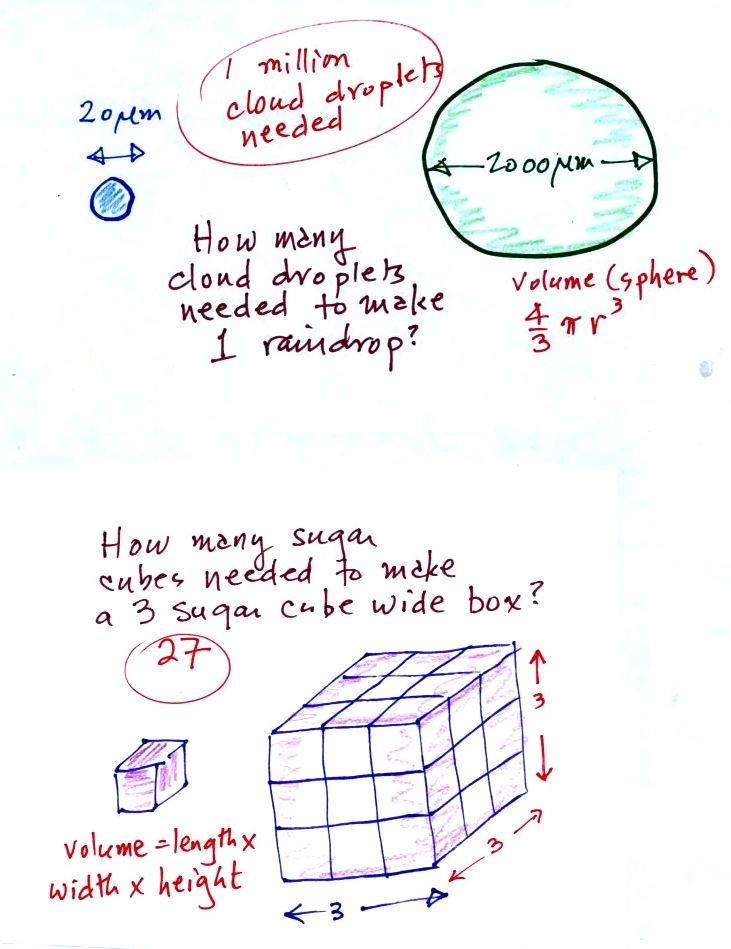 1 million
cloud droplets
needed
20 μm
2000 μm
How many
cloud droplets
needed to make
1 raindrop?
Volume (sphere)
4/3 π r³
How many sugar
cubes needed to make
a 3 sugar cube wide box?
27
3
3
3
Volume = length x
width x height